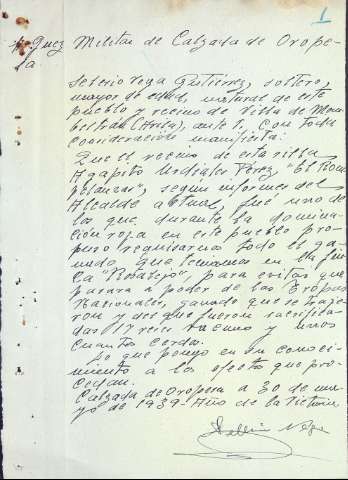 1
Juez Militar de Calzada de Orope-
sa
Vega Gutiérrez, soltero,
mayor de edad, natural de este
pueblo y vecino de Villa de Mom-
beltran (Avila), ante V. con toda
consideración manifiesta:
Que el vecino de esta villa
Agapito Urdiales Pérez "El
", segun informes del
Alcalde actual, fué uno de
los que, durante la domina-
ción roja en este pueblo pro-
puso requisarnos todo el ga-
nado que teniamos en la fin-
ca, para evitar que
pasara a poder de las Tropas
Nacionales, ganado que se traje-
ron y del que fueron sacrifica-
das 17 reses vacuno y unos
cuanto cerda.
Lo que pongo en su conoci-
miento a los efectos que pro-
cedan.
Calzada de Oropesa a 30 de ma-
yo de 1939- Año de la Victoria
Vega